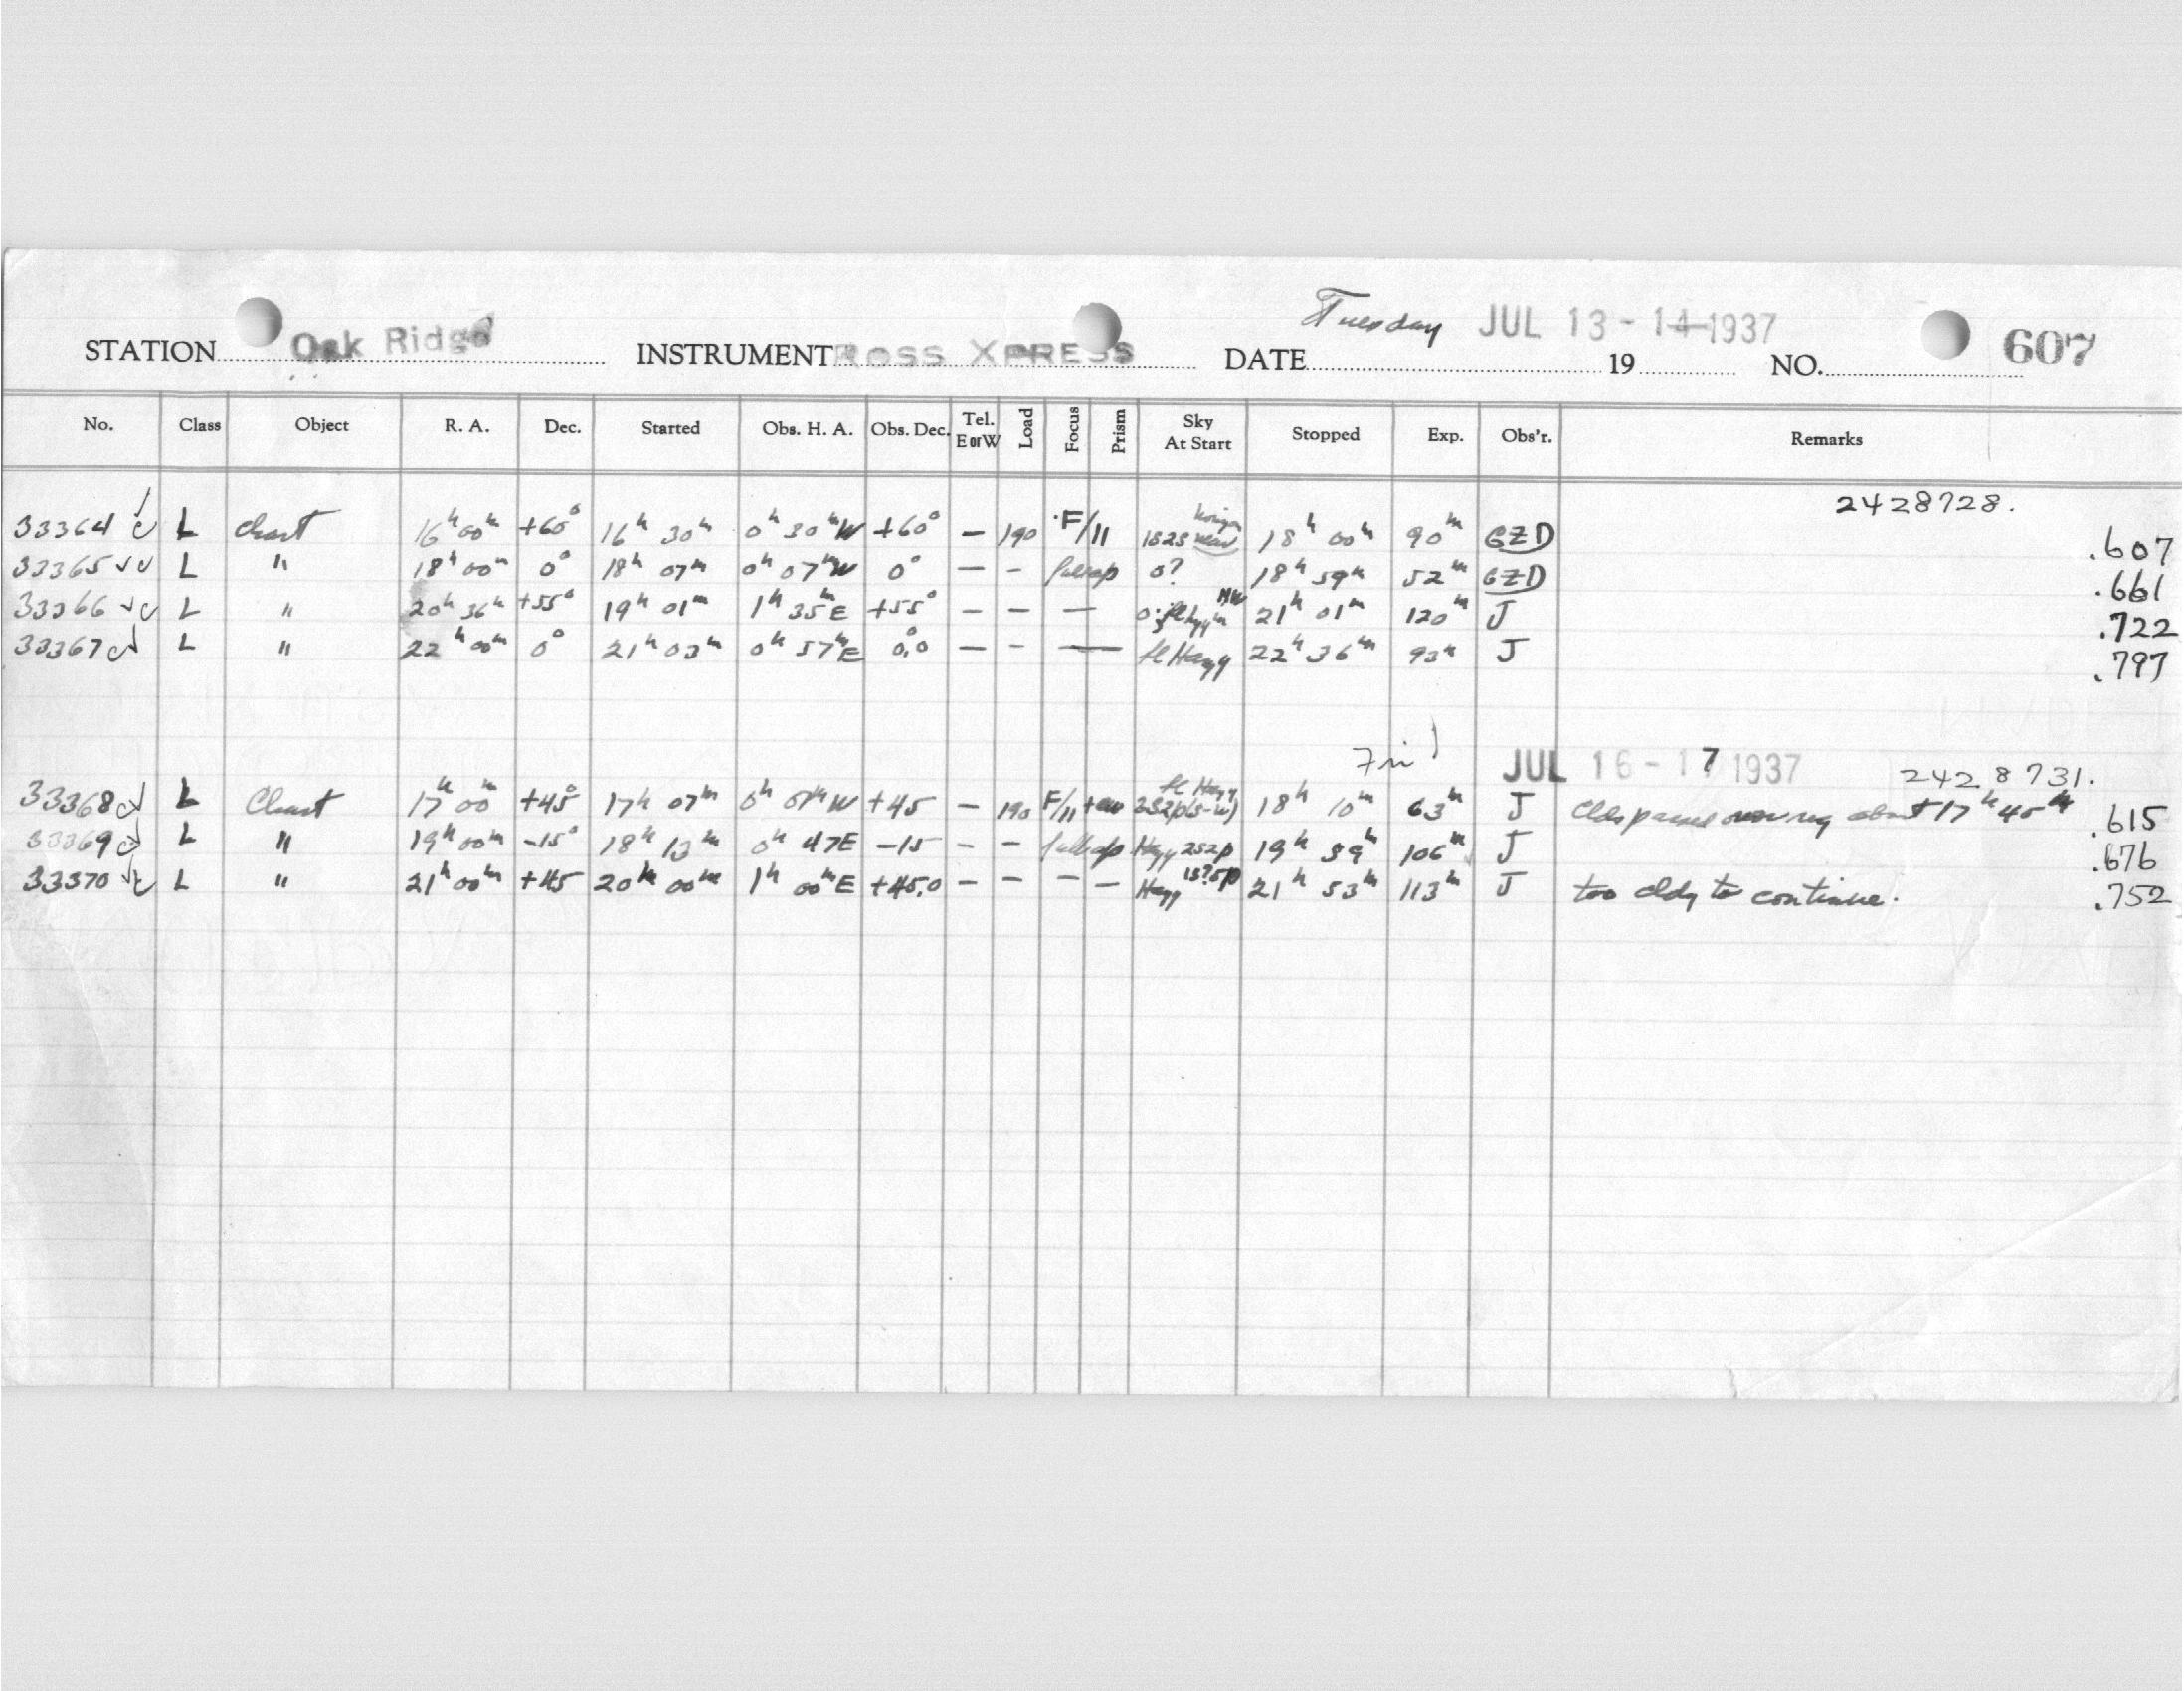 Tuesday JUL 13 - 14 1937
STATION Oak Ridge INSTRUMENT ROSS XPRESS DATE 19 NO. 607
No. Class Object R. A. Dec. Started Obs. H. A. Obs. Dec. Tel. E or W Load Focus Prism Sky At Start Stopped Exp. Obs'r. Remarks
2428728.
33364 L Chart 16h 00m +60° 16h 30m 0h 30m W +60° — 190 F/11 1828 18h 00m 90m GZD .607
33365 L " 18h 00m 0° 18h 07m 0h 07m W 0° — - full ap 0? 18h 59m 52m GZD .661
33366 L " 20h 36m +55° 19h 01m 1h 35m E +55° — — — 21h 01m 120m J .722
33367 L " 22h 00m 0° 21h 03m 0h 57m E 0.0° — - — sl Hazy 22h 36m 93m J .797
Fri JUL 16 - 17 1937 2428731.
33368 L Chart 17h 00m +45° 17h 07m 0h 07m W +45 — 190 F/11 sl Hazy 2S2p(S-W) 18h 10m 63m J Clds passed over reg about 17h 45m .615
33369 L " 19h 00m -15° 18h 13m 0h 47 E -15 - - full ap Hazy 2S2p 19h 59m 106m J .676
33370 L " 21h 00m +45 20h 00m 1h 00m E +45.0 - - - — Hazy 1S?5p 21h 53m 113m J too cldy to continue. .752